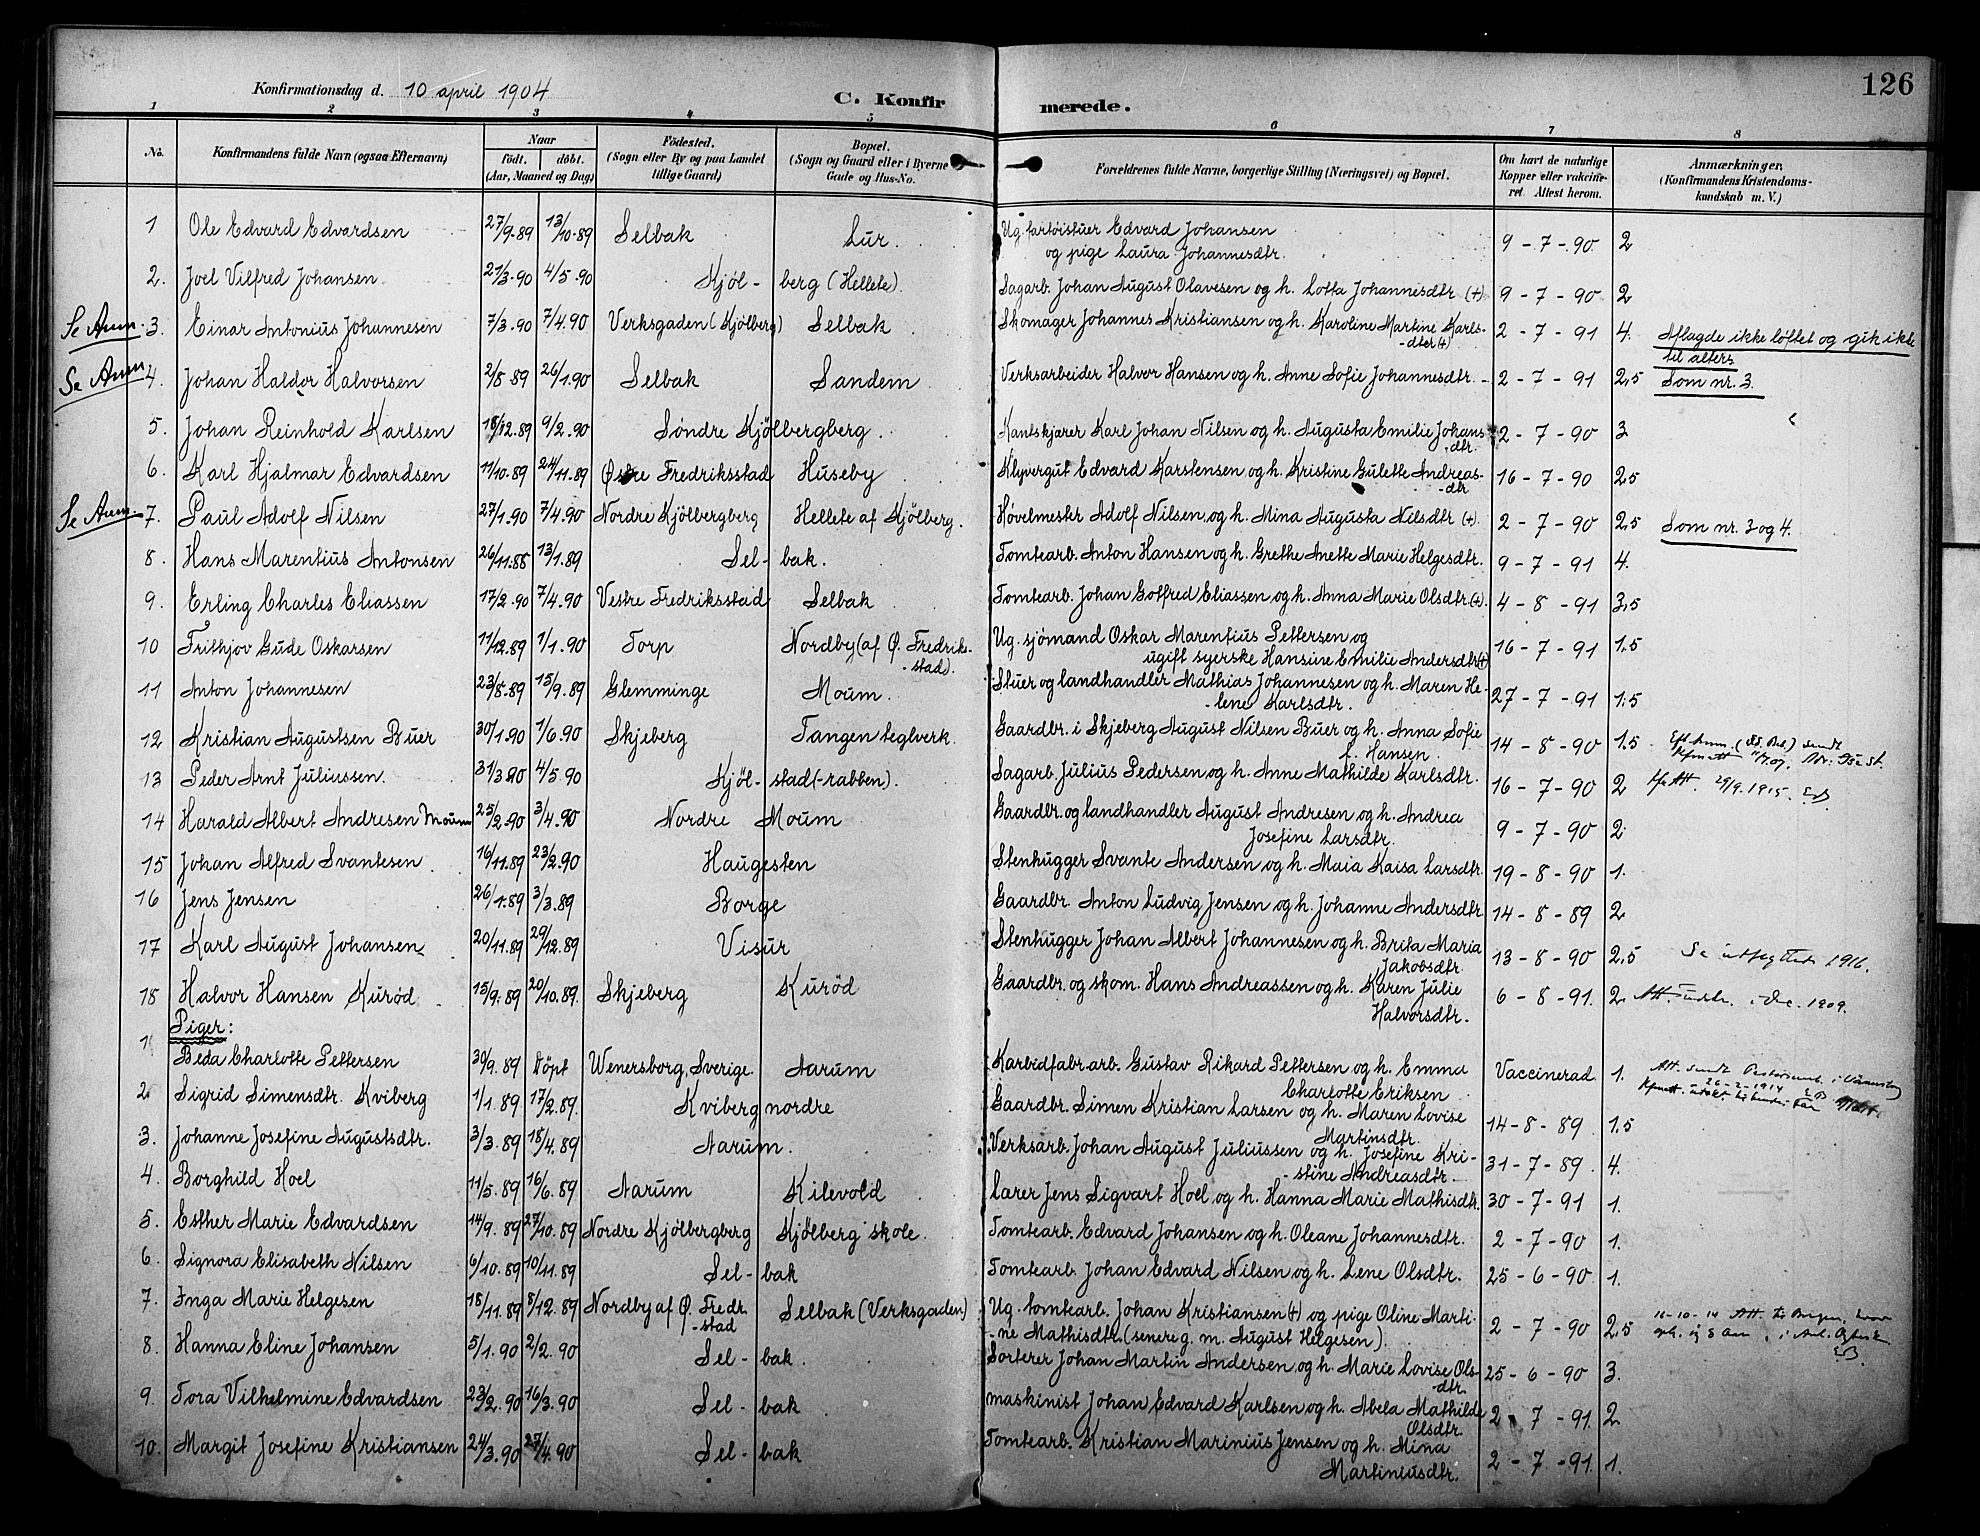 126
Konfirmationsdag d. 10 april 1904
C. Konfirmerede.
1 2 3 4 5 6 7 8
No. Konfirmandens fulde Navn (ogsaa Efternavn) Naar født. døbt. (Aar, Maaned og Dag) Födested. (Sogn eller By og paa Landet tillige Gaard) Bopæl. (Sogn og Gaard eller i Byerne Gade og Hus-No. Forældrenes fulde Navne, borgerlige Stilling (Næringsvei) og Bopæl. Om havt de naturlige Kopper eller vakcineret. Attest herom. Anmærkninger. (Konfirmandens Kristendomskundskab m. V.)
1 Ole Edvard Edvardsen 27/9.89 13/10.89 Selbak Lur. Ug. fartøistuer Edvard Johansen og pige Laura Johannesdtr. 9-7-90 2
2. Joel Vilfred Johansen 21/3.90 4/5.90 Kjöl-berg (Hellete). Sagarb. Johan August Olavesen og h. Lotta Johannesdtr (+) 9-7-90 2
Se Anm. 3. Einar Antonius Johannesen 7/3.90 7/4.90 Verksgaden (Kjölberg) Selbak Skomager Johannes Kristiansen og h. Karoline Martine Karls-dter (+) 2-7-91 4. Aflagde ikke løftet og gik ikke til alters
Se Anm 4. Johan Haldor Halvorsen 2/8 89 26/1.90 Selbak Sandem Verksarbeider Halvor Hansen og h. Anne Sofie Johannesdtr. 2-7-91 2,5 Som nr. 3.
5. Johan Reinhold Karlsen 18/12.89 9/2.90 Søndre Kjölbergberg. Kantskjærer Karl Johan Nilsen og h. Augusta Emilie Johansdtr. 2-7-90 3
6. Karl Hjalmar Edvardsen 11/10.89 24/11.89 Østre Fredriksstad Huseby Klyvergut Edvard Karstensen og h. Kristine Gulette Andreas-dtr 16-7-90 2,5
Se Anm. 7. Paul Adolf Nilsen 27/1.90 7/4.90 Nordre Kjölbergberg Hellete af Kjölberg. Høvelmester Adolf Nilsen og h. Mina Augusta Nilsdtr (+). 2-7-90 2,5 Som nr. 3 og 4.
8. Hans Marentius Antonsen 26/11.88 13/1.89 Sel-bak. Tomtearb. Anton Hansen og h. Grethe Anette Marie Helgesdtr. 9-7-91 4.
9. Erling Charles Eliassen 17/2.90 7/4.90 Vestre Fredriksstad Selbak Tomtearb. Johan Gotfred Eliassen og h. Anna Marie Olsdtr. (+). 4-8-91 3,5
10 Frithjov Gude Oskarsen 11/12.89 1/1.90 Torp Nordby (af Ø. Fredriks-stad). Ug. sjömand Oskar Marentius Pettersen og ugift syerske Hansine Emilie Andersdtr (+) 16-7-91 1,5
11 Anton Johannesen 23/8.89 15/9.89 Glemminge Moum. Stuer og landhandler Mathias Johannesen og h. Maren He-lene Karlsdtr. 27-7-91 1,5
12 Kristian Augustsen Buer 30/1.90 1/6.90 Skjeberg Tangen teglverk. Gaardbr. i Skjeberg August Nilsen Buer og h. Anna Sofie f. Hansen. 14-8-90 1,5
13 Peder Arnt Juliussen 31/3.90 4/5.90 Kjöl-stad (-rabben). Sagarb. Julius Pedersen og h. Anne Mathilde Karlsdtr. 16-7-90 2 29/9.1915.
14 Harald Albert Andresen Moum 25/2.90 3/4.90 Nordre Moum Gaardbr. og landhandler August Andresen og h. Andrea Josefine Larsdtr. 9-7-90 2
15 Johan Alfred Svantesen 16/11.89 23/2.90 Haugesten Stenhugger Svante Andersen og h. Maia Kaisa Larsdtr. 19-8-90 1.
16 Jens Jensen 26/1.89 3/3.89 Borge Gaardbr. Anton Ludvig Jensen og h. Johanne Andersdtr. 14-8-89 2
17 Karl August Johansen 20/11.89 29/12.89 Visur Stenhugger Johan Albert Johannesen og h. Brita Maria Jakobsdtr. 13-8-90 2,5 1916.
18 Halvor Hansen Kuröd 15/9.89 20/10.89. Skjeberg Kuröd Gaardbr. og skom. Hans Andreassen og h. Karen Julie Halvorsdtr. 6-8-91. 2 1909.
Piger:
1 Beda Charlotte Pettersen 30/9.89 Döpt Wenersborg, Sverige. Aarum Karbidfabr.arb. Gustav Rikard Pettersen og h. Emma Charlotte Eriksen Vaccinerad 1.
2 Sigrid Simensdtr. Kviberg 1/1.89 17/2.89. Kviberg nordre Gaardbr. Simen Kristian Larsen og h. Maren Lovise Martinsdtr. 14-8-89 1,5
3. Johanne Josefine Augustsdtr. 3/3.89 18/4.89 Aarum. Verksarb. Johan August Juliussen og h. Josefine Kri-stine Andreasdtr. 31-7-89 4.
4 Borghild Hoel 11/5.89 16/6.89 Aarum Kilevold Lærer Jens Sigvart Hoel og h. Hanna Marie Mathisdtr. 30-7-91 1.
5. Esther Marie Edvardsen 14/9.89 27/10.89 Nordre Kjölbergberg Kjölberg skole. Tomtearb. Edvard Johansen og h. Oleane Johannesdtr. 2-7-90 1.
6. Signora Elisabeth Nilsen 6/10.89 10/11.89 Sel-bak Tomtearb. Johan Edvard Nilsen og h. Lene Olsdtr. 25-6-90 1.
7. Inga Marie Helgesen 18/11.89 8/12.89 Nordby af Ø. Fredr.-stad Selbak (Verksgaden) Ug. tomtearb. Johan Kristiansen (+) og pige Oline Marti-ne Mathisdtr. (senere g. m. August Helgesen). 2-7-90 2,5
8. Hanna Eline Johansen 5/1.90 2/2.90 Sel-bak. Sorterer Johan Martin Andersen og h. Marie Lovise Ols-dtr. 25-6-90 3.
9. Tora Vilhelmine Edvardsen 23/2.90 16/3.90 Sel-bak maskinist Johan Edvard Karlsen og h. Abela Mathilde Olsdtr. 2-7-91 2
10. Margit Josefine Kristiansen 24/3.90 27/4.90 Sel-bak Tomtearb. Kristian Marinius Jensen og h. Mina Martiniusdtr. 2-7-91. 1.